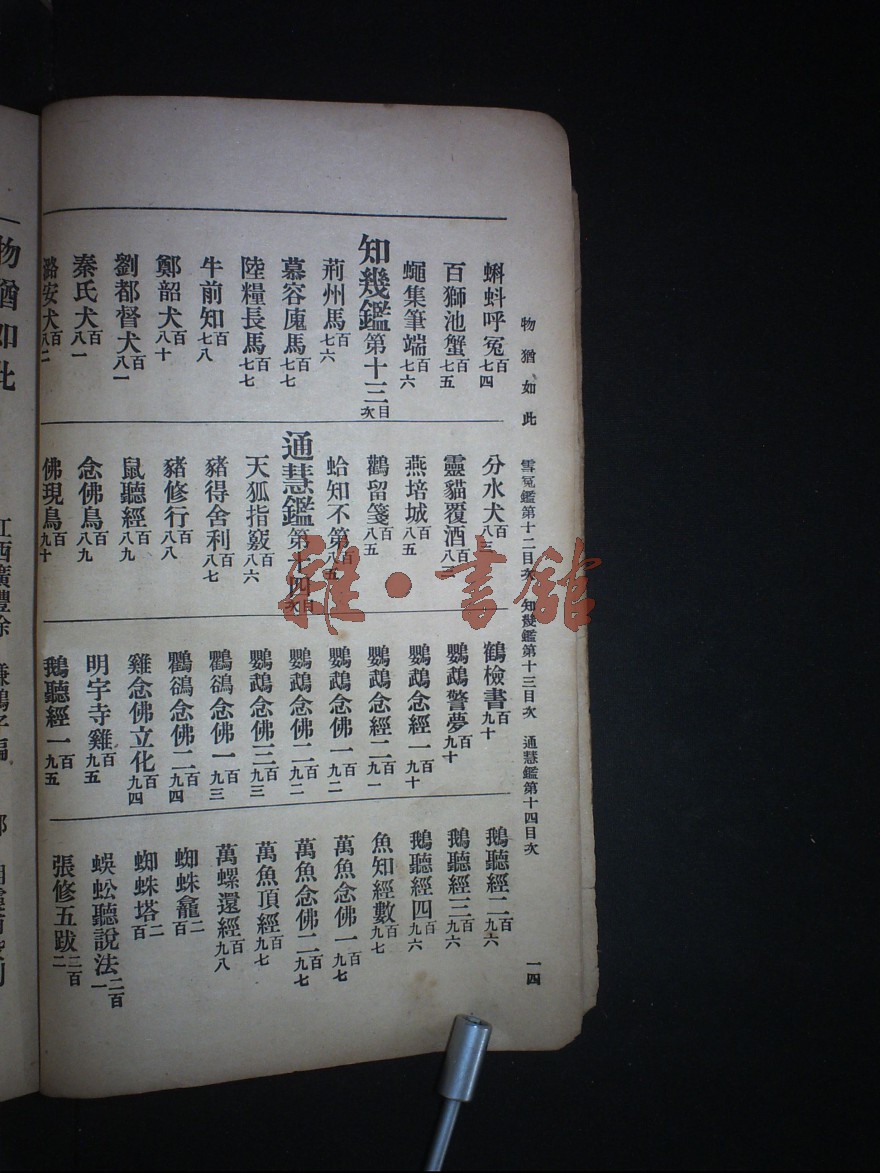 物猶如此 雪冤鑑第十二目次 知幾鑑第十三目次 通慧鑑第十四目次 一四
蝌蚪呼冤百七四
百獅池蟹百七五
蠅集筆端百七六
知幾鑑第十三目次
荊州馬百七六
慕容廆馬百七七
陸糧長馬百七七
牛前知百七八
鄭韶犬百八十
劉都督犬百八一
秦氏犬百八一
潞安犬百八二
分水犬百八三
靈貓覆酒百八
燕培城百八五
鸛留箋百八五
蛤知不第百八五
通慧鑑第十四目次
天狐指竅百八六
豬得舍利百八七
豬修行百八八
鼠聽經百八九
念佛鳥百八九
佛現鳥百九十
鶴檢書百九十
鸚鵡警夢百九十
鸚鵡念經一百九十
鸚鵡念經二百九一
鸚鵡念佛一百九二
鸚鵡念佛二百九二
鸚鵡念佛三百九三
鸜鵒念佛一百九三
鸜鵒念佛二百九四
雞念佛立化百九四
明宇寺雞百九五
鵝聽經一百九五
鵝聽經二百九六
鵝聽經三百九六
鵝聽經四百九六
魚知經數百九七
萬魚念佛一百九七
萬魚念佛二百九七
萬魚頂經百九七
萬螺還經百九八
蜘蛛龕二百
蜘蛛塔二百
蜈蚣聽說法二百一
張修五跋二百二
物猶如此
江西廣豐徐謙
雜·書館